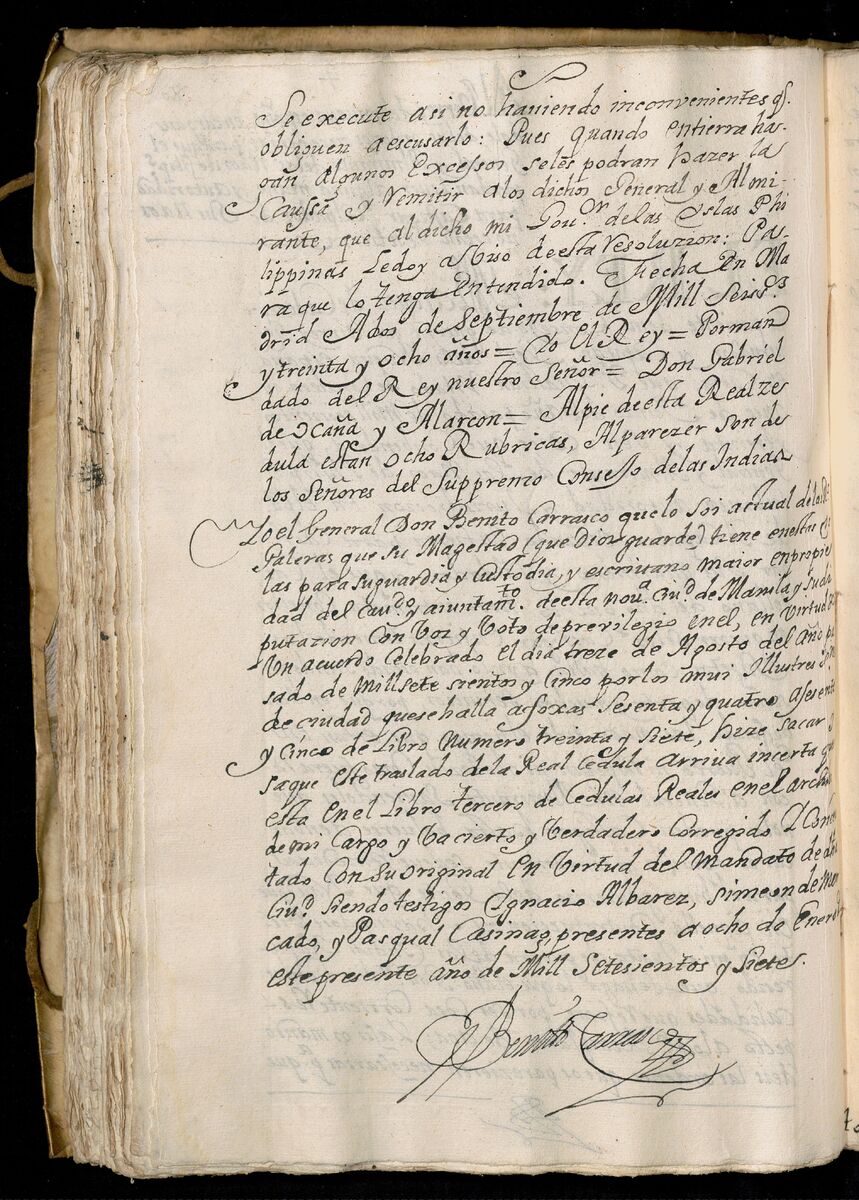 Se execute asi no haviendo inconvenientes q̃.
obliguen a escusarlo: Pues quando en tierra ha-
gan algunos Excessos seles podran hazer la
Caussa y remitir alos dichos General y Almi-
rante, que al dicho mi Gou.ᵒʳ de las Yslas Phi
lippinas Ledoy abiso de esta resoluzion: Pa-
ra que lo tenga entendido. Fecha En Ma
drid Ados de Septiembre de Mill Seiss.ˢ
y treinta y ocho años = Yo El Rey = Porman
dado del Rey nuestro Señor = Don Gabriel
de Ocaña y Alarcon = Alpie de esta Real ze
dula estan ocho Rubricas, Al parezer son de
los Señores del Suppremo Consejo delas Indias
Yo el General Don Benito Carrasco que lo soi actual de las
Galeras que su Magestad (que Dios guarde) tiene en estas Ys
las para su guardia y Custodia, y escriuano maior en propie
dad del cau.ᵈᵒ y aiuntam.ᵗᵒ de esta nou.ᵃ Ciu.ᵈ de Manila y su di
putazion Con Voz y Voto de previlegio en el, en virtud de
Un acuerdo Celebrado el dia treze de Agosto del año pa
sado de Mill sete sientos y Cinco por los mui Illustres
de ciudad que se halla a foxas Sesenta y quatro, a sesenta
y Cinco de Libro Numero treinta y Siete, hize sacar
saque este traslado dela Real Cedula arriva incerta que
esta en el Libro tercero de Cedulas Reales en el archi
de mi Cargo y Va cierto y Verdadero Corregido Y Concer
tado Con su original En Virtud del Mandato de dha
Ciu.ᵈ siendo testigos Ygnacio Albarez, Simeon de Mer
cado, y Pasqual Casinag, presentes a ocho de Enero
este presente año de Mill Setesientos y Siete.
Benito Carrasco